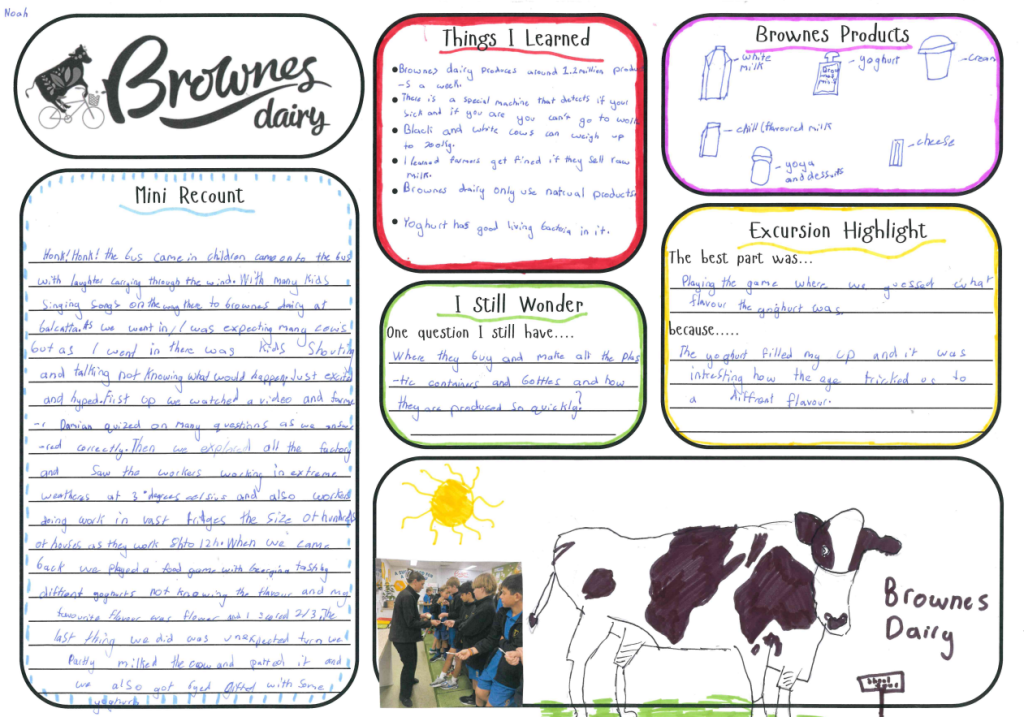 Noah
Brownes
dairy
Mini Recount
Honk! Honk! the bus came in children came onto the bus
with laughter carrying through the wind. With many kids
singing songs on the way there to brownes dairy at
balcatta. As we went in, I was expecting many cows
but as I went in there was kids shouting
and talking not knowing what would happen. Just excited
and hyped. First up we watched a video and farme
-r Damian quized on many questions as we answe
-red correctly. Then we explored all the factory
and saw the workers working in extreme
weatheres at 3° degrees celsius and also worked
doing work in vast fridges the size of hundreds
of houses as they work 8h to 12h. When we came
back we played a food game with Georgina tasting
diffrent yoghurts not knowing the flavour and my
favourite flavour was and I scored 2/3. The
last thing we did was unexpected turn we
Partly milked the cow and patted it and
we also got gifted with some
yoghurt
Things I Learned
Brownes dairy produces around 1.2 million produc
-s a week.
There is a special machine that detects if your
sick and if you are you can't go to work
Black and white cows can weigh up
to 700kg.
I learned farmers get fined if they sell raw
milk.
Brownes dairy only use natrual products.
Yoghurt has good living bactoia in it.
I Still Wonder
One question I still have....
Where they buy and make all the plas
-tic containers and bottles and how
they are produced so quickly?
Brownes Products
white
milk
yoghurt
cream
chill/flavoured milk
yoga
and desserts
cheese
Excursion Highlight
The best part was...
Playing the game where we guessed what
flavour the yoghurt was.
because.....
The yoghurt filled my up and it was
intresting how the age tricked us to
a diffrent flavour.
Brownes
Dairy